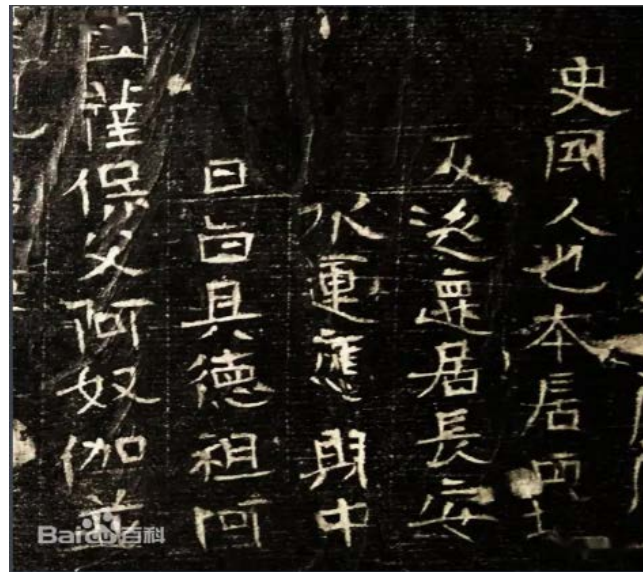 史國人也本居西
及 派遷居長安
水運應期中
日 百具德祖阿
國薩保父阿奴伽並
Baidu百科